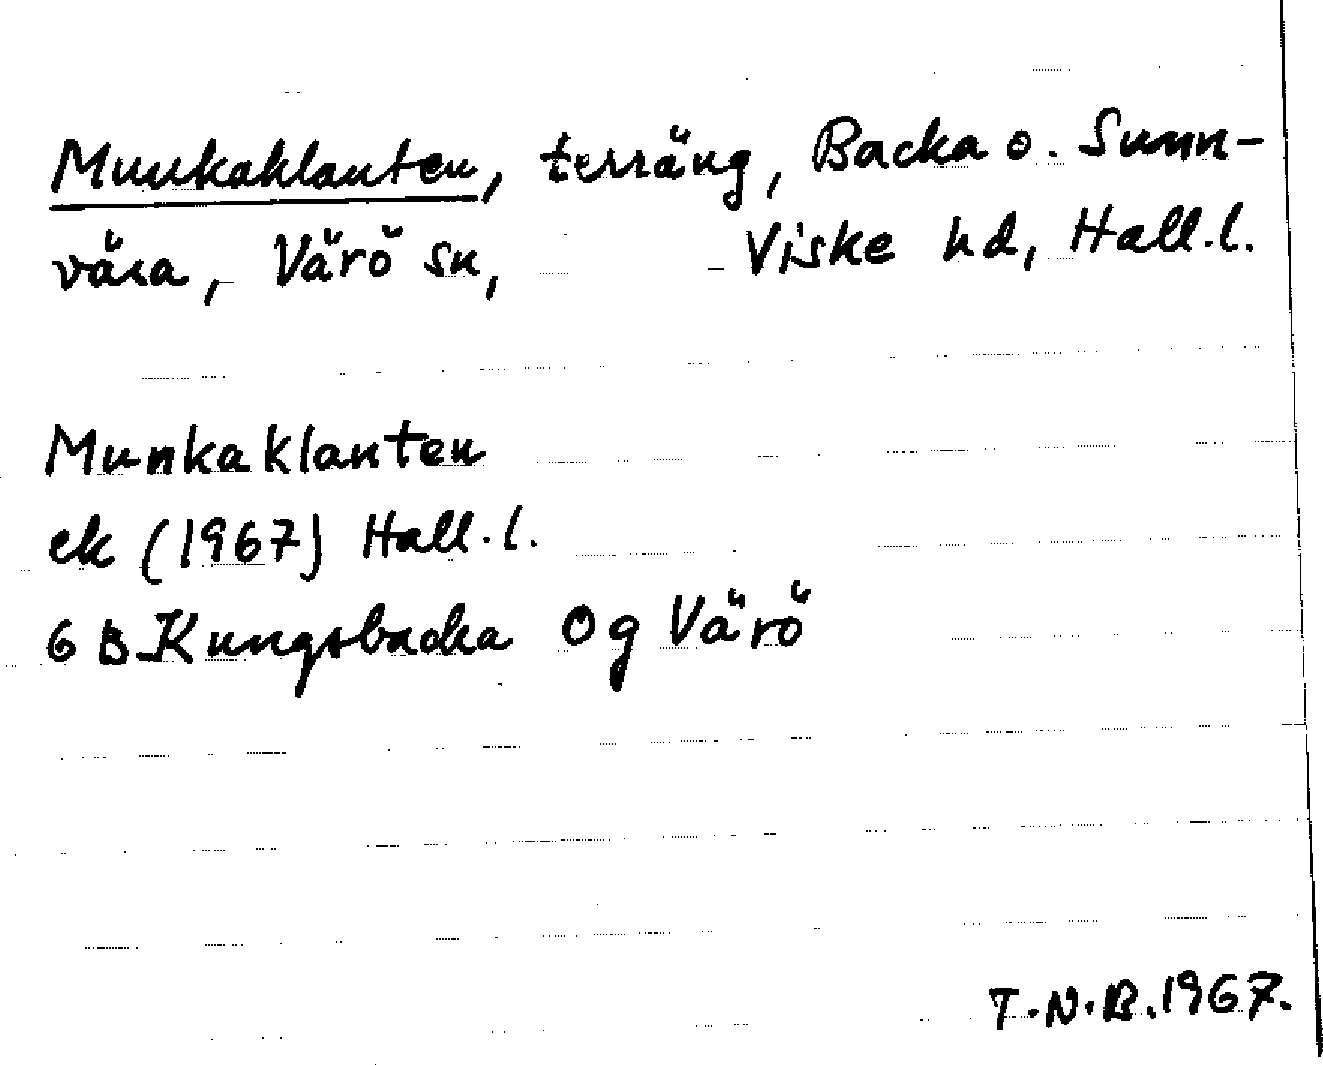 Munkaklanten, terräng, Backa o. Sunn-
vära, Värö sn, Viske hd, Hall.l.
Munkaklanten
ek (1967) Hall.l.
6 B Kungsbacka 0g Värö
T.N.B.1967.